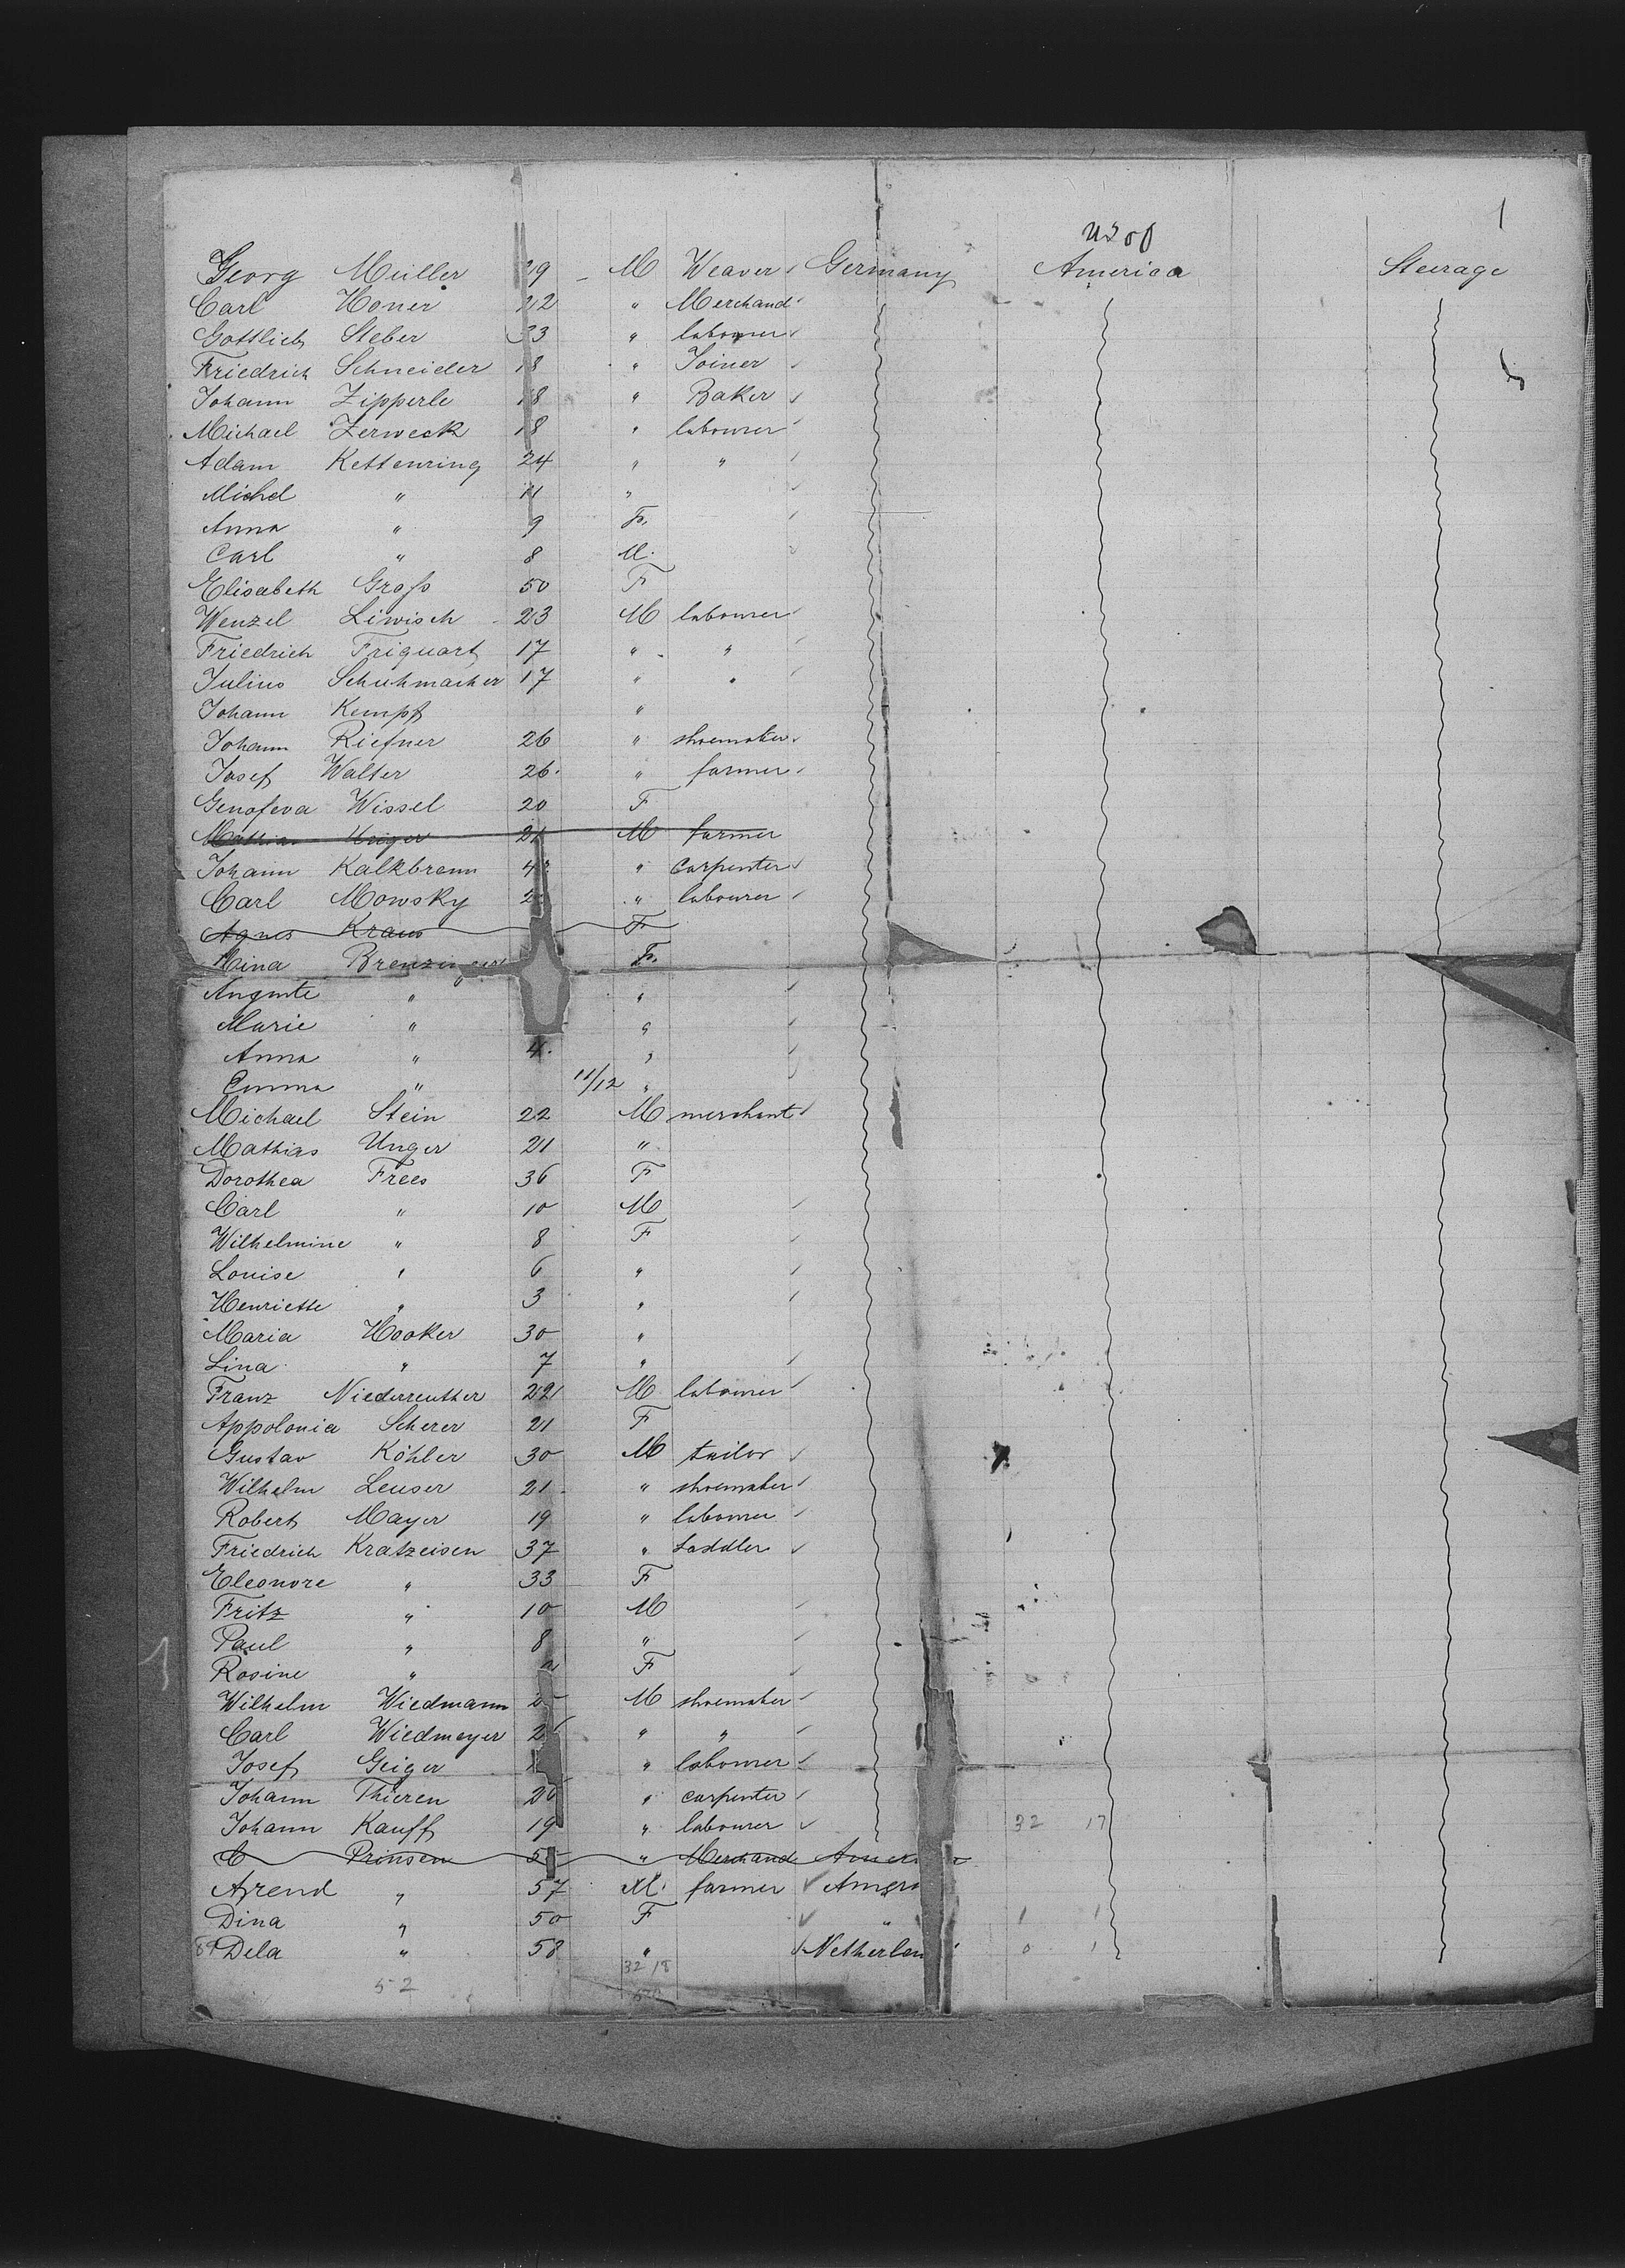 1
US of
Georg Müller 29 M Weaver Germany America Steerage
Carl Honer 22 " Merchand
Gottlieb Steber 33 " labourer
Friedrich Schneider 18 " Joiner
Johann Zipperle 18 " Baker
Michael Zerweck 18 " labourer
Adam Kettenring 24 " "
Michel " 11 "
Anna " 9 F.
Carl " 8 M.
Elisabeth Groß 50 F
Wenzel Liwisch 23 M labourer
Friedrich Friquart 17 " "
Julius Schuhmacher 17 " "
Johann Kempf "
Johann Riefner 26 " shoemaker
Josef Walter 26 " farmer
Genofeva Wissel 20 F
Mathias Unger 21 M farmer
Johann Kalkbrenn 4 " carpenter
Carl Mowsky 2 " labourer
Agnes Kraus F
Mina Brenzinger F.
Auguste " "
Marie " "
Anna " 4 "
Emma " 11/12 "
Michael Stein 22 M merchant
Mathias Unger 21 "
Dorothea Frees 36 F
Carl " 10 M
Wilhelmine " 8 F
Louise " 6 "
Henriette " 3 "
Maria Hooker 30 "
Lina " 7 "
Franz Niederreuther 22 M labourer
Appolonia Scherer 21 F
Gustav Köhler 30 M tailor
Wilhelm Leuser 21 " shoemaker
Robert Mayer 19 " labourer
Friedrich Kratzeisen 37 " Saddler
Eleonore " 33 F
Fritz " 10 M
Paul " 8 "
Rosine " F
Wilhelm Wiedmann M shoemaker
Carl Wiedmeyer 2 " "
Josef Geiger " labourer
Johann Thieren 26 " carpenter
Johann Kauff 19 " labourer 32 17
C Prinsen 5 " Merchand Amer
Arend " 57 M. farmer Ameri
Dina " 50 F " 1 1
Dela " 58 " Netherlan 0 1
52 32 18
1